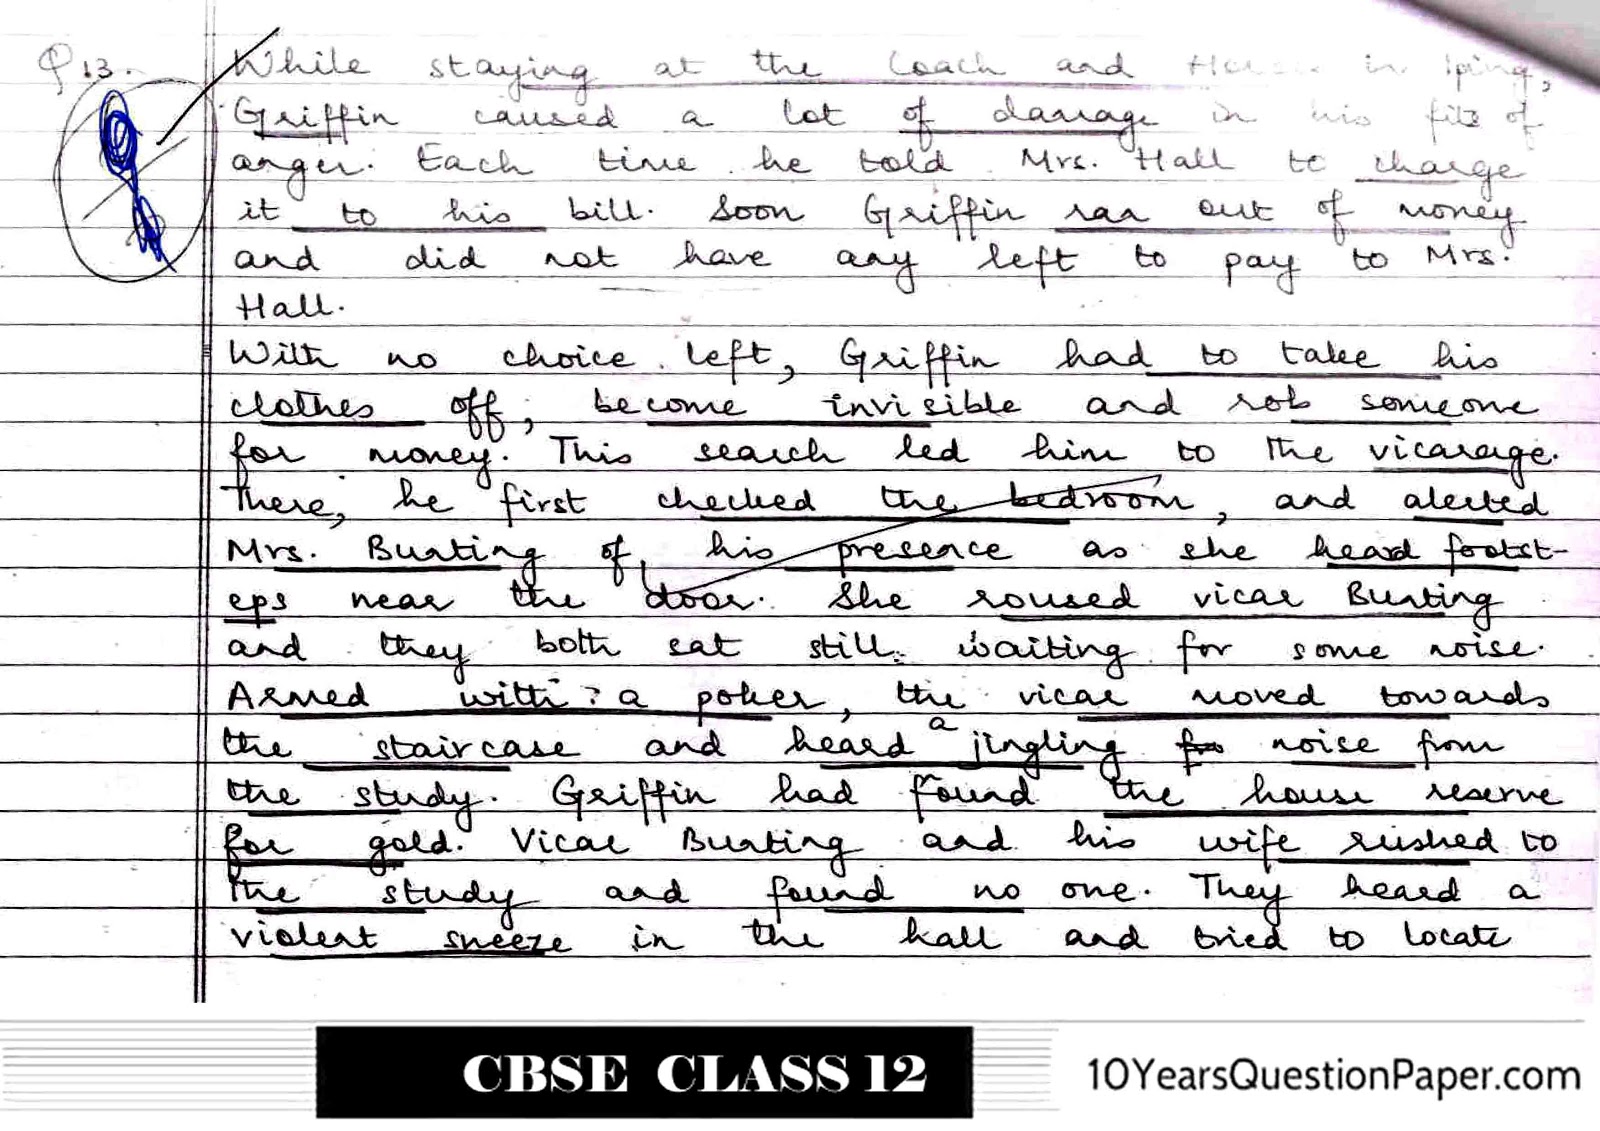 Q 13. While staying at the Coach and Horses in Iping,
Griffin caused a lot of damage in his fits of
anger. Each time he told Mrs. Hall to charge
it to his bill. Soon Griffin ran out of money
and did not have any left to pay to Mrs.
Hall.
With no choice left, Griffin had to take his
clothes off, become invisible and rob someone
for money. This search led him to the vicarage.
There, he first checked the bedroom, and alerted
Mrs. Bunting of his presence as she heard footst-
eps near the door. She roused vicar Bunting
and they both sat still waiting for some noise.
Armed with a poker, the vicar moved towards
the staircase and heard a jingling noise from
the study. Griffin had found the house reserve
for gold. Vicar Bunting and his wife rushed to
the study and found no one. They heard a
violent sneeze in the hall and tried to locate
CBSE CLASS 12
10YearsQuestionPaper.com